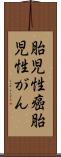 胎児性癌胎
児性がん